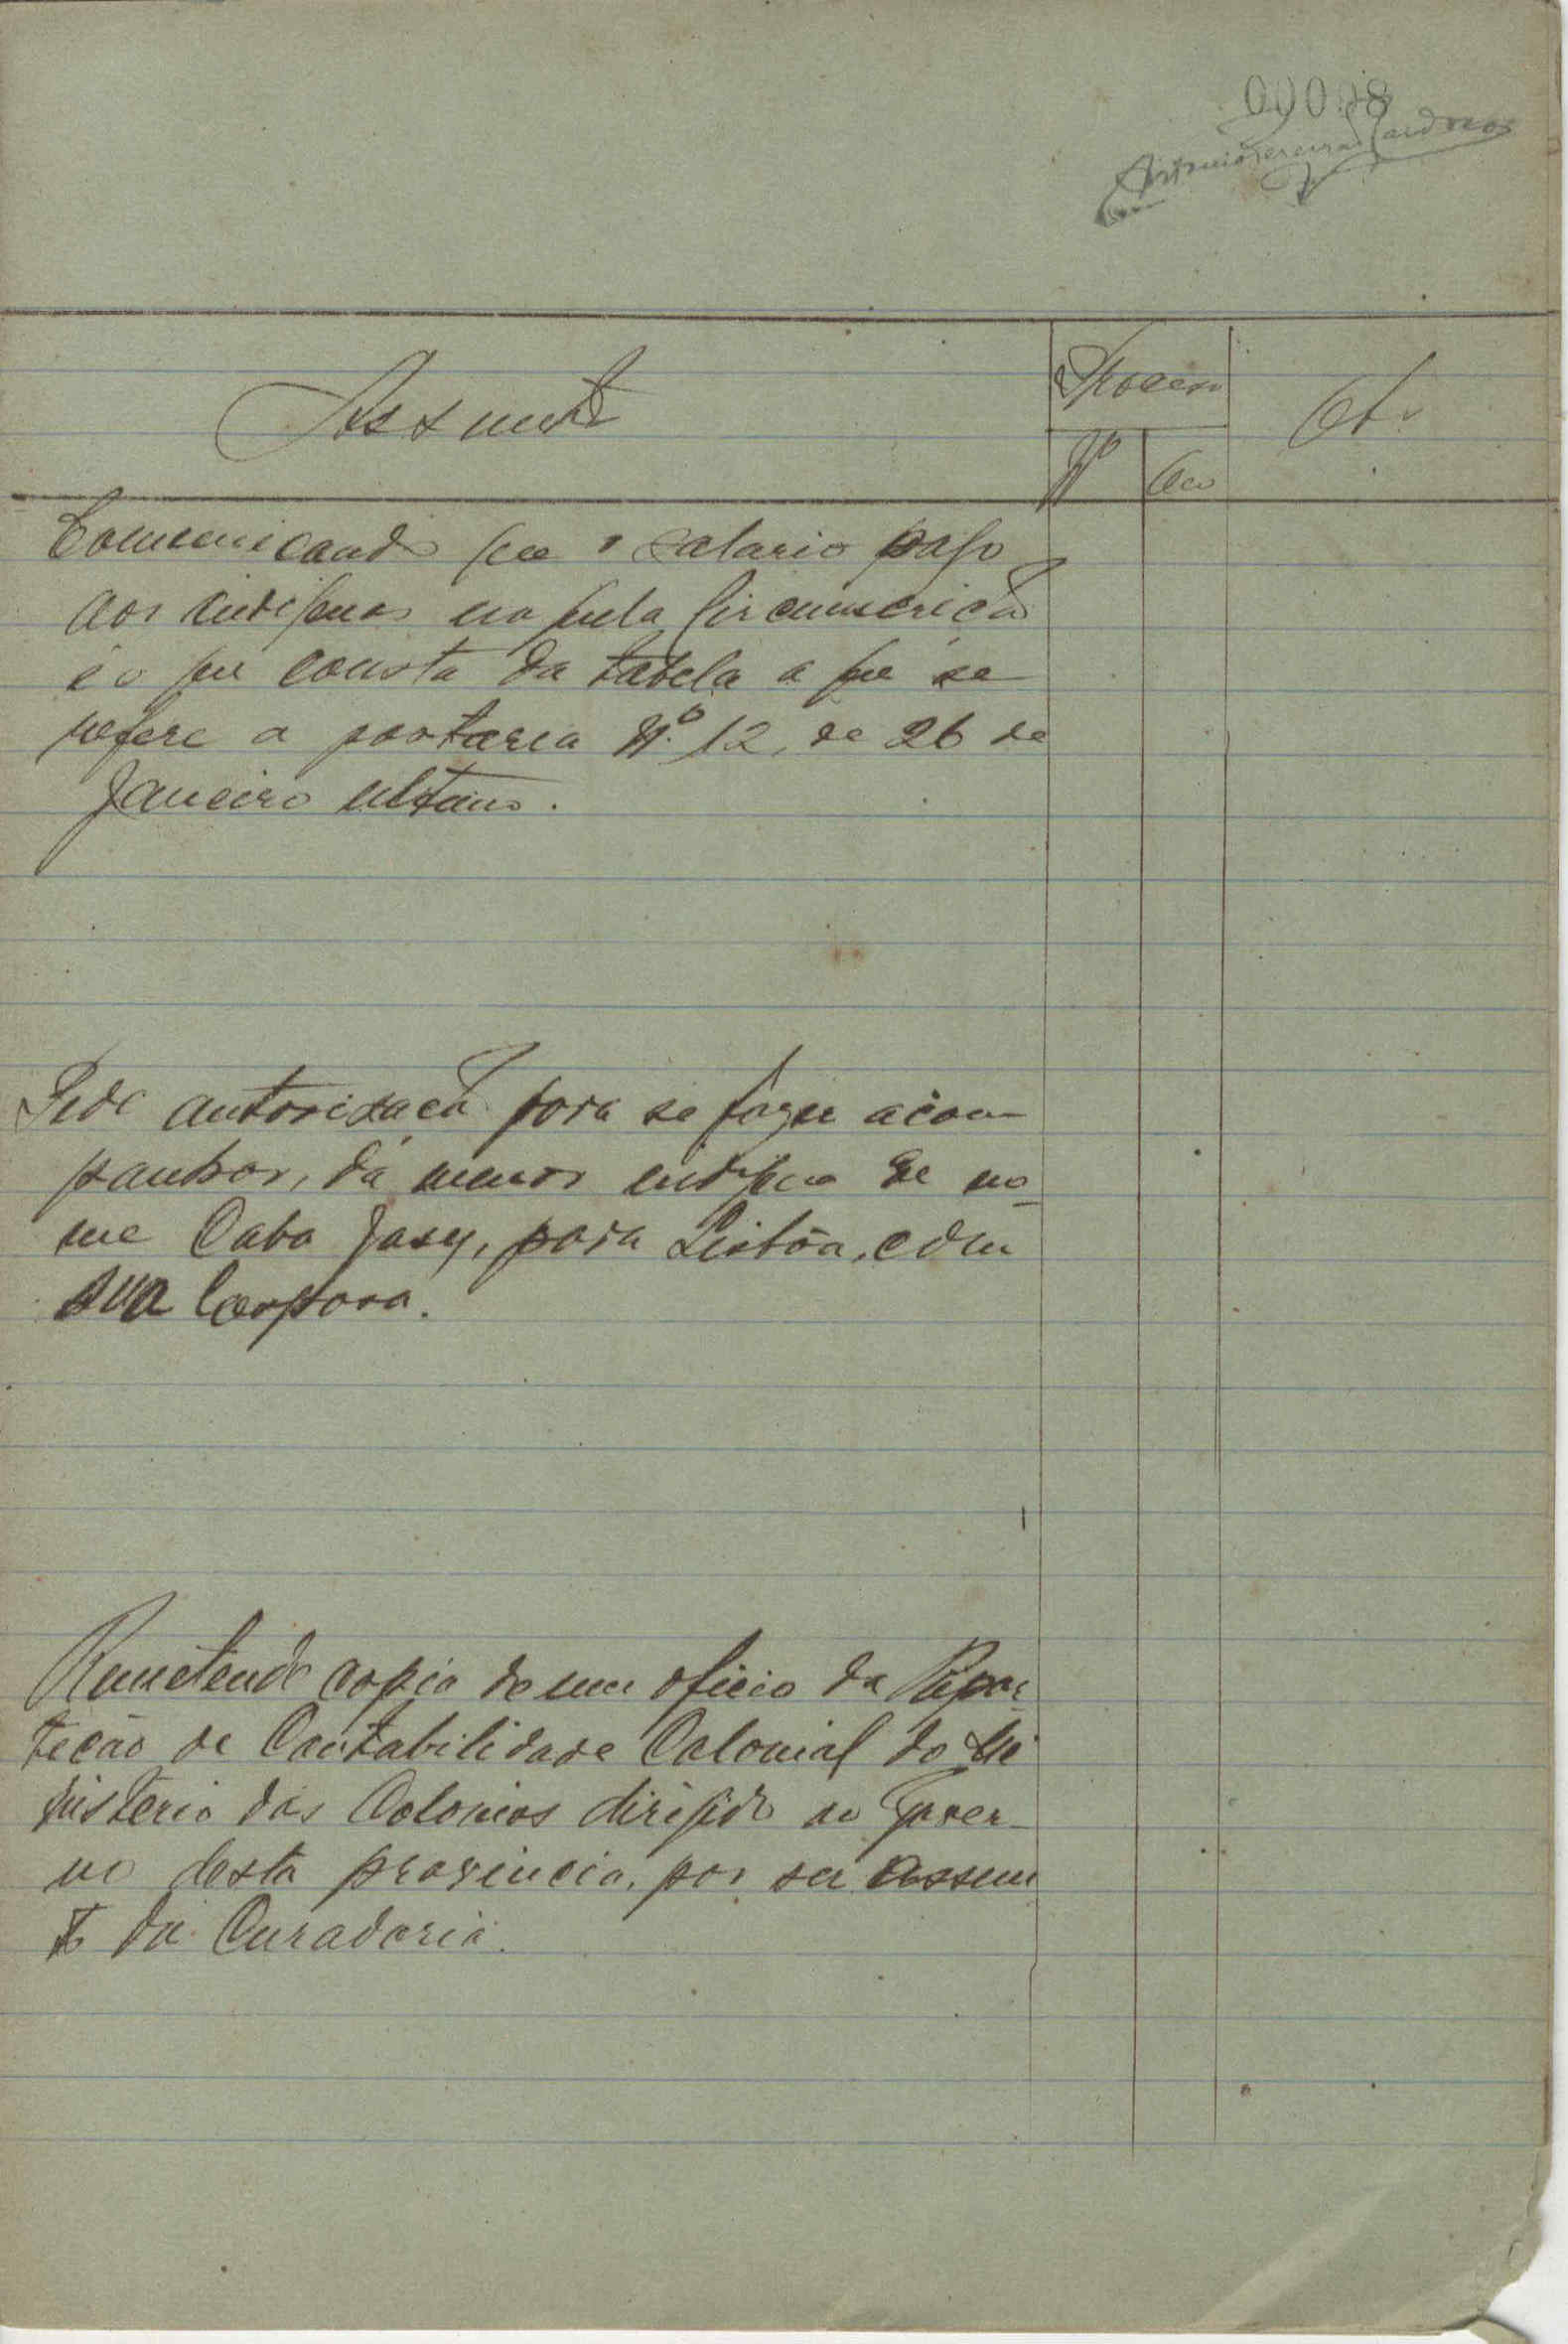 00008
Antonio Pereira Cardoso
Assunto
Processo
Nº
Ob.
Comunicando que o salario pago
aos indigenas naquela circunscrição
é o que consta da tabela a que se
refere a portaria Nº 12, de 26 de
Janeiro ultimo.
Pede autorisação para se fazer acom
panhar, da menor indigena de no-
me Caba Jassy, para Lisbôa, com
sua
Remetendo copia de um oficio da Repar
tição de Contabilidade Colonial do Mi
nisterio das Colonias dirigido ao Gover-
no desta provincia, por ser assun
to da Curadoria.